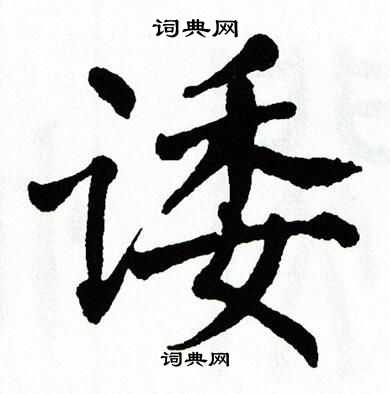 词典网
诿
词典网